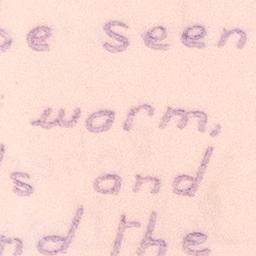 be seen
worm,
s and
and the